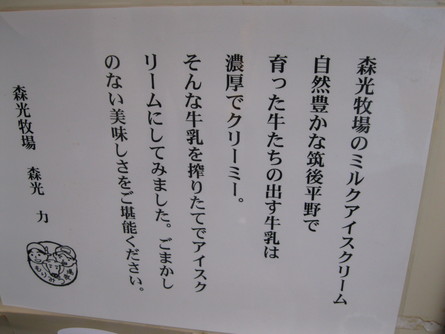 森光牧場のミルクアイスクリーム
自然豊かな筑後平野で
育った牛たちの出す牛乳は
濃厚でクリーミー。
そんな牛乳を搾りたてでアイスク
リームにしてみました。ごまかし
のない美味しさをご堪能ください。
森光牧場　森光　力